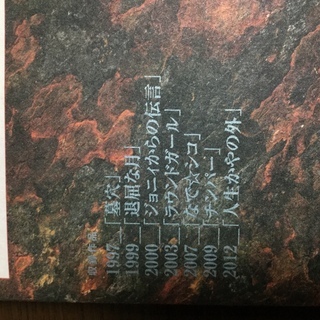 1997_「墓穴」
1999_「退屈な月」
2000_「ジョニィからの伝言」
2003_「ラウンドガール」
2007_「なで☆シコ」
2009_「チンパー」
2012_「人生かやの外」